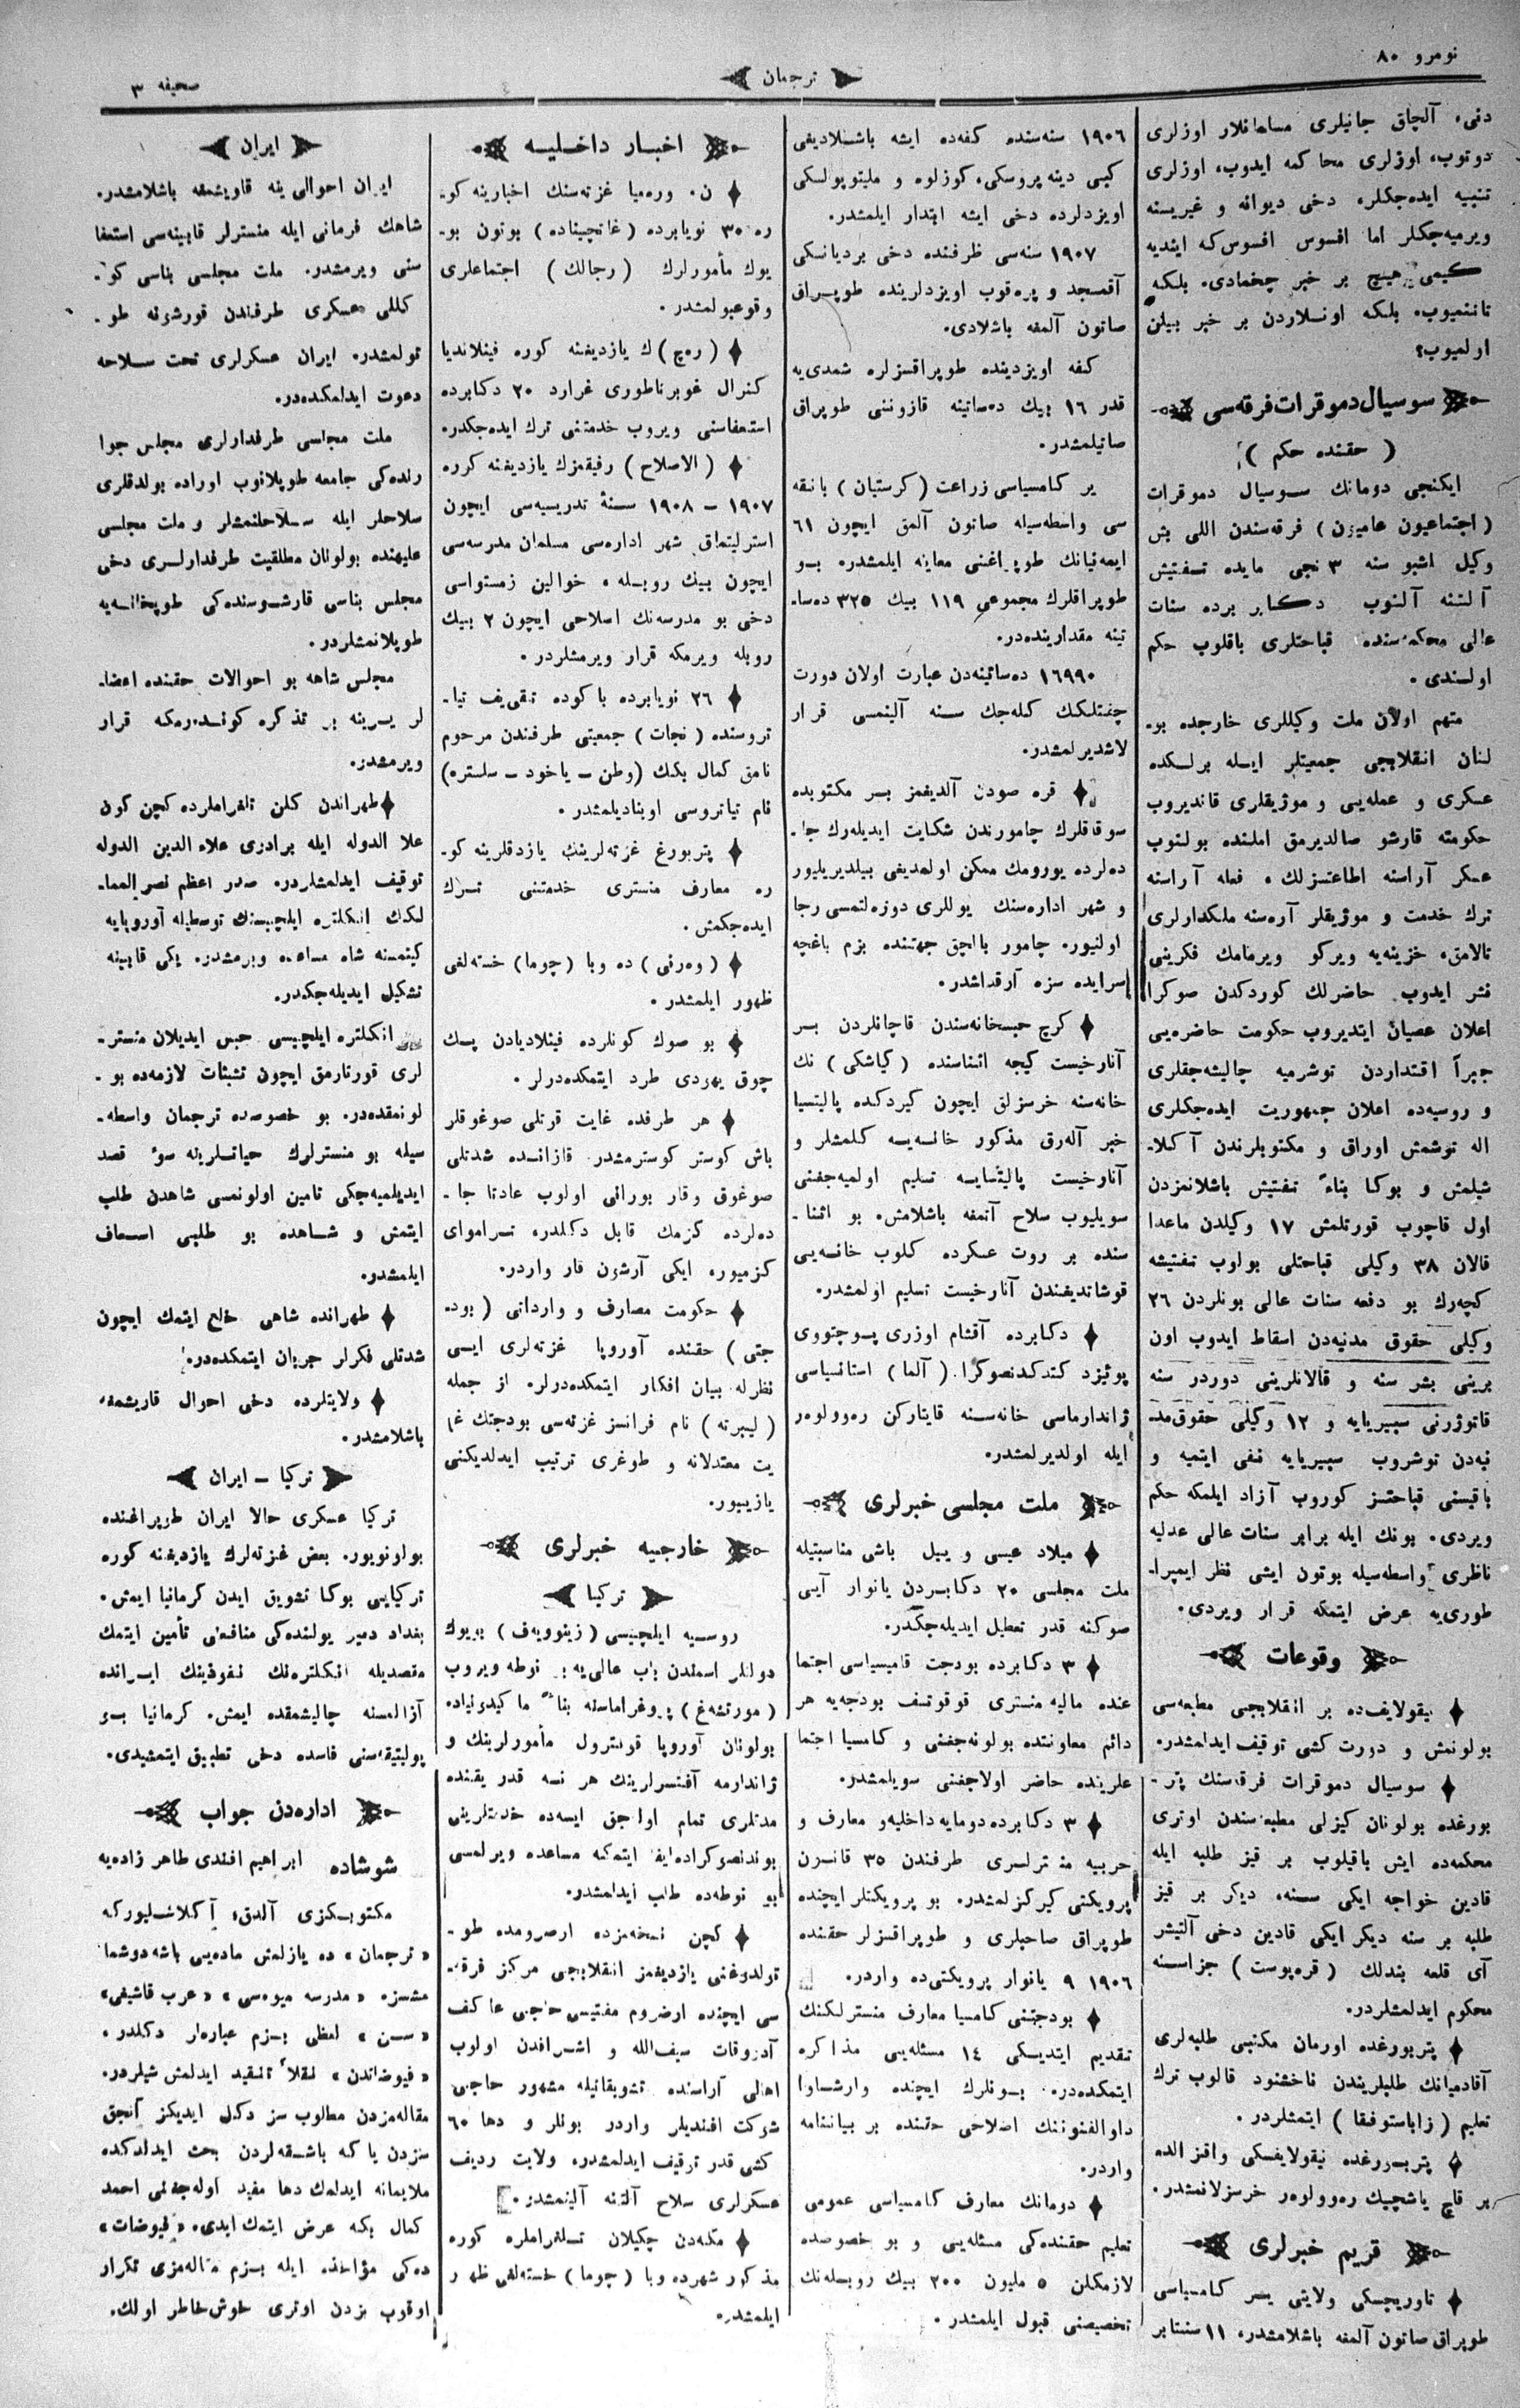 نومرو ٨٠
ترجمان
صحیفه ٣
دنیء آلچاق جانیلری مسلمانلار اوزلری
دوتوب، اوزلری محاکمه ایدوب، اوزلری
تنبیه ایده‌جکلر، دخی دیوانه و غیریسنه
ویرمیه‌جکلر اما افسوس افسوس‌که ایتدیه
کیمی هیچ بر خبر چخمادی. بلکه
تانتمیوب، بلکه اونلاردن بر خبر بیلن
اولمیوب؟
سوسیال دموقرات فرقه‌سی
( حقنده حکم )
ایکنجی دومانك سوسیال دموقرات
( اجتماعیون عامیون ) فرقه‌سندن اللی بش
وکیل اشبو سنه ٣ نجی مایده تفتیش
آلتنه آلنوب دکابر برده سنات
عالی محکمه‌سنده قباحتلری باقلوب حکم
اولندی.
متهم اولان ملت وکیللری خارجده بو-
لنان انقلابجی جمعیتلر ایله برلکده
عسکری و عمله‌یی و موژیقلری قاندیروب
حکومته قارشو صالدیرمق املنده بولنوب
عسکر آراسنه اطاعتسزلك، فعله آراسنه
ترك خدمت و موژیقلر آره‌سنه ملکدارلری
تالامق، خزینه‌یه ویرکو ویرمامك فکرینی
نشر ایدوب حاضرلك کوردکدن صوکرا
اعلان عصیان ایتدیروب حکومت حاضره‌یی
جبراً اقتداردن توشرمیه چالیشه‌جقلری
و روسیه‌ده اعلان جمهوریت ایده‌جکلری
اله توشمش اوراق و مکتوبلرندن آکلا-
شیلمش و بوکا بناءً تفتیش باشلانمزدن
اول قاچوب قورتلمش ١٧ وکیلدن ماعدا
قالان ٣٨ وکیلی قباحتلی بولوب تفتیشه
کچه‌رك بو دفعه سنات عالی بونلردن ٢٦
وکیلی حقوق مدنیه‌دن اسقاط ایدوب اون
برینی بشر سنه و قالانلرینی دوردر سنه
قاتوژرنی سیبیریایه و ١٢ وکیلی حقوق‌مد-
نیه‌دن توشروب سیبیریایه نفی ایتمیه و
باقیسنی قباحتسز کوروب آزاد ایلمکه حکم
ویردی. بونك ایله برابر سنات عالی عدلیه
ناظری واسطه‌سیله بوتون ایشی نظر ایمپرا-
طوری‌یه عرض ایتمکه قرار ویردی.
وقوعات
نیقولایف‌ده بر انقلابجی مطبعه‌سی
بولونمش و دورت کشی توقیف ایدلمشدر.
سوسیال دموقرات فرقه‌سنك پتر-
بورغده بولونان کیزلی مطبعه‌سندن اوتری
محکمه‌ده ایش باقیلوب بر قیز طلبه ایله
قادین خواجه ایکی سنه، دیکر بر قیز
طلبه بر سنه دیکر ایکی قادین دخی آلتیشر
آی قلعه بندلك ( قره‌پوست ) جزاسنه
محکوم ایدلمشلردر.
پتربورغده اورمان مکتبی طلبه‌لری
آقادمیانك طلبلریندن ناخشنود قالوب ترك
تعلیم ( زاباستوفقا ) ایتمشلردر.
پتربورغده نیقولایفسکی واقزالده
بر قاچ یاشچیك ره‌وولوه‌ر خرسزلانمشدر.
قریم خبرلری
تاوریچسکی ولایتی یر کامسیاسی
طوپراق صاتون آلمغه باشلامشدر، ١١ سنتابر
١٩٠٦ سنه‌سنده کفه‌ده ایشه باشلادیغی
کبی دینه‌پروسکی، کوزلوه و ملیتوپولسکی
اویزدلرده دخی ایشه ابتدار ایلمشدر.
١٩٠٧ سنه‌سی ظرفنده دخی بردیانسکی
آقمسجد و پره‌قوب اویزدلرینده طوپراق
صاتون آلمغه باشلادی.
کفه اویزدینده طوپراقسزلره شمدی‌یه
قدر ١٦ بیك ده‌ساتینه قازوننی طوپراق
صاتیلمشدر.
یر کامسیاسی زراعت ( کرستیان ) بانقه
سی واسطه‌سیله صاتون آلمق ایچون ٦١
ایمه‌نیانك طوپراغنی معاینه ایلمشدر. بو
طوپراقلرك مجموعی ١١٩ بیك ٣٢٥ ده‌سا-
تینه مقدارینده‌در.
١٦٩٩٠ ده‌ساتینه‌دن عبارت اولان دورت
چفتلکك کله‌جك سنه آلینمسی قرار
لاشدیرلمشدر.
قره صودن آلدیغمز بر مکتوبده
سوقاقلرك چامورندن شکایت ایدیله‌رك جا-
ده‌لرده یورومك ممکن اولمدیغی بیلدیریلیور
و شهر اداره‌سنك یوللری دوزه‌لتمسی رجا
اولنیور. چامور بالچق جهتنده بزم باغچه
سرایده سزه آرقداشدر.
کرچ حبسخانه‌سندن قاچانلردن بر
آنارخیست کیجه اثناسنده ( کیاشکی ) نك
خانه‌سنه خرسزلق ایچون کیردکده پالیتسیا
خبر آله‌رق مذکور خانه‌یه کلمشلر و
آنارخیست پالیتسایه تسلیم اولمیه‌جغنی
سویلیوب سلاح آتمغه باشلامش. بو اثنا-
سنده بر روت عسکرده کلوب خانه‌یی
قوشاتدیغندن آنارخیست تسلیم اولمشدر.
دکابرده آقشام اوزری پوچتووی
پوئیزد کتدکدنصوکرا ( آلما ) استانسیاسی
ژاندارماسی خانه‌سنه قایتارکن ره‌وولوه‌ر
ایله اولدیرلمشدر.
ملت مجلسی خبرلری
میلاد عیسی و ییل باشی مناسبتیله
ملت مجلسی ٢٠ دکابردن یانوار آیی
صوکنه قدر تعطیل ایدیله‌جکدر.
٣ دکابرده بودجت قامیسیاسی اجتما
عنده مالیه منستری قوقوتسف بودجه‌یه هر
دائم معاونتده بولونه‌جغنی و کامسیا اجتما
علرینده حاضر اولاجغنی سویلمشدر.
٣ دکابرده دومایه داخلیه‌و معارف و
حربیه منسترلری طرفندن ٣٥ قانون
پرویکتی کیرکزلمشدر. بو پرویکتلر ایچنده
طوپراق صاحبلری و طوپراقسزلر حقنده
١٩٠٦ ٩ یانوار پرویکتی‌ده واردر.
بودجتنی کامسیا معارف منسترلکنك
تقدیم ایتدیکی ١٤ مسئله‌یی مذاکره
ایتمکده‌در. بونلرك ایچنده وارشاوا
دارالفنوننك اصلاحی حقنده بر بیاننامه
واردر.
دومانك معارف کامسیاسی عمومی
تعلیم حقنده‌کی مسئله‌یی و بو خصوصده
لازمکلن ٥ ملیون ٢٠٠ بیك روبله‌نك
تخصیصنی قبول ایلمشدر.
اخبار داخلیه
ن. وره‌میا غزته‌سنك اخبارینه کو-
ره ٣٠ نویابرده ( غاتچیناده ) بوتون بو-
یوك مأمورلرك ( رجالك ) اجتماعلری
وقوعبولمشدر.
( ره‌چ ) ك یازدیغنه کوره فینلاندیا
کنرال غوبرناطوری غرارد ٢٠ دکابرده
استعفاسنی ویروب خدمتنی ترك ایده‌جکدر.
( الاصلاح ) رفیقمزك یازدیغنه کوره
١٩٠٧ – ١٩٠٨ سنۀ تدریسیه‌سی ایچون
استرلیتماق شهر اداره‌سی مسلمان مدرسه‌سی
ایچون بیك روبله، خوالین زمستواسی
دخی بو مدرسه‌نك اصلاحی ایچون ٢ بیك
روبله ویرمکه قرار ویرمشلردر.
٢٦ نویابرده باکوده تقی‌یف تیا-
تروسنده ( نجات ) جمعیتی طرفندن مرحوم
نامق کمال بکك (وطن – یاخود – سلستره)
نام تیاتروسی اوینادیلمشدر.
پتربورغ غزته‌لرینك یازدقلرینه کو-
ره معارف منستری خدمتنی ترك
ایده‌جکمش.
( وه‌رنی ) ده وبا ( چوما ) خسته‌لغی
ظهور ایلمشدر.
بو صوك کونلرده فینلادیادن پك
چوق یهودی طرد ایتمکده‌درلر.
هر طرفده غایت قرتلی صوغوقلر
باش کوستر کوسترمشدر. قازانده شدتلی
صوغوق وقار بورانی اولوب عادتا جا-
ده‌لرده کزمك قابل دکلدر، تراموای
کزمیور. ایکی آرشون قار واردر.
حکومت مصارف و وارداتی ( بود-
جتی ) حقنده آوروپا غزته‌لری ایی
نظرله بیان افکار ایتمکده‌درلر. از جمله
( لیبرته ) نام فرانسز غزته‌سی بودجتك غا
یت معتدلانه و طوغری ترتیب ایدلدیکنی
یازییور.
خارجیه خبرلری
ترکیا
روسیه ایلچیسی ( زینوویه‌ف ) بویوك
دولتلر اسمندن باب عالی‌یه بر نوطه ویروب
( مورتشتغ ) پروغراماسنه بناءً ماکیدونیاده
بولونان آوروپا قونترول مأمورلرینك و
ژاندارمه آفتسرلرینك هر نه قدر یقینده
مدتلری تمام اولاجق ایسه‌ده خدمتلرینی
بوندنصوکراده ایفا ایتمکه مساعده ویرلمسی
بو نوطه‌ده طلب ایدلمشدر.
کچن نسخه‌مزده ارضرومده طو-
تولدوغنی یازدیغمز انقلابجی مرکز فرقه-
سی ایچنده اوضروم مفتیسی حاجی عاکف
آدووقات سیف‌الله و اشرافدن اولوب
اهالی آراسنده تشویقاتیله مشهور حاجی
شوکت افندیلر واردر بونلر و دها ٦٠
کشی قدر توقیف ایدلمشدر، ولایت ردیف
عسکرلری سلاح آلتنه آلینمشدر.
مکه‌دن چکیلان تلغراملره کوره
مذکور شهرده وبا ( چوما ) خسته‌لغی ظهور
ایلمشدر.
ایران
ایران احوالی ینه قاویشمغه باشلامشدر.
شاهك فرمانی ایله منسترلر قابینه‌سی استعفا
سنی ویرمشدر. ملت مجلسی بناسی کو-
کللی عسکری طرفندن قورشونه طو-
تولمشدر. ایران عسکرلری تحت سلاحه
دعوت ایدلمکده‌در.
ملت مجلسی طرفدارلری مجلس جوا
رنده‌کی جامعه طوپلانوب اوراده بولدقلری
سلاحلر ایله سلاحلنمشلر و ملت مجلسی
علیهنده بولونان مطلقیت طرفدارلری دخی
مجلس بناسی قارشوسنده‌کی طوپخانه‌یه
طوپلانمشلردر.
مجلس شاهه بو احوالات حقنده اعضا-
لر یرینه بر تذکره کوندرمکه قرار
ویرمشدر.
طهراندن کلن تلغراملرده کچن کون
علا الدوله ایله برادری علاء الدین الدوله
توقیف ایدلمشلردر. صدر اعظم نصرالمما-
لکك انکلتره ایلچیسنك توسطیله آوروپایه
کیتمسنه شاه مساعده ویرمشدر. یکی قابینه
تشکیل ایدیله‌جکدر.
انکلتره ایلچیسی حبس ایدیلان منستر-
لری قورتارمق ایچون تشبثات لازمه‌ده بو-
لونمقده‌در. بو خصوصده ترجمان واسطه-
سیله بو منسترلرك حیاتلرینه سوء قصد
ایدیلمیه‌جکی تامین اولونمسی شاهدن طلب
ایتمش و شاهده بو طلبی اسعاف
ایلمشدر.
طهرانده شاهی خلع ایتمك ایچون
شدتلی فکرلر جریان ایتمکده‌در.
ولایتلرده دخی احوال قاریشمغه
باشلامشدر.
ترکیا – ایران
ترکیا عسکری حالا ایران طوپراغنده
بولونویور. بعض غزته‌لرك یازدیغنه کوره
ترکیایی بوکا تشویق ایدن کرمانیا ایمش.
بغداد دمیر یولنده‌کی منافعنی تأمین ایتمك
مقصدیله انکلتره‌نك نفوذینك ایرانده
آزالمسنه چالیشمقده ایمش. کرمانیا بو
پولیتیقه‌سنی فاسده دخی تطبیق ایتمشیدی.
اداره‌دن جواب
شوشاده ابراهیم افندی طاهر زاده‌یه
مکتوبکزی آلدق، آکلاشلیورکه
« ترجمان » ده یازلمش ماده‌یی باشه‌دوشما
مشسز. « مدرسه میوه‌سی » « عرب قاشیغی»
« سن » لفظی بزم عباره‌لر دکلدر.
« فیوضاتدن » نقلاً تنقید ایدلمش شیلردر.
مقاله‌مزدن مطلوب سز دکل ایدیکز آنجق
سزدن یا که باشقه‌لردن بحث ایدلدکده
ملایمانه ایدلمك دها مفید اوله‌جغنی احمد
کمال بکه عرض ایتمك ایدی. « فیوضات»
ده‌کی مؤاخذه ایله بزم مقاله‌مزی تکرار
اوقوب بزدن اوتری خوش‌خاطر اولك.